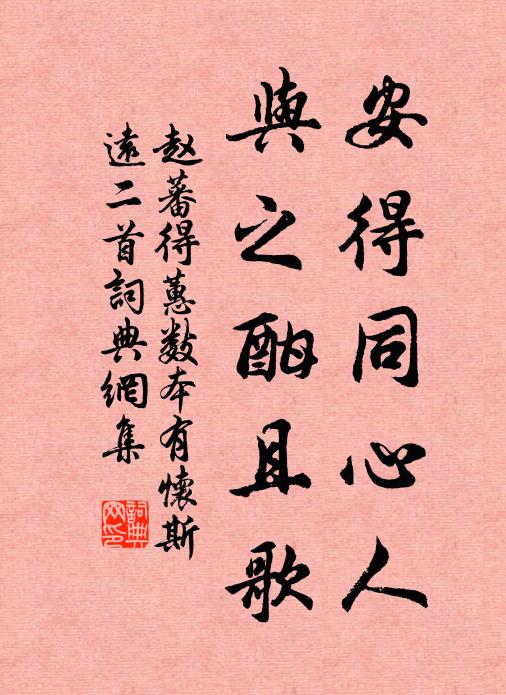 安得同心人
與之酣且歌
赵蕃得蕙数本有懷斯
遠二首詞典網集
詞典網印